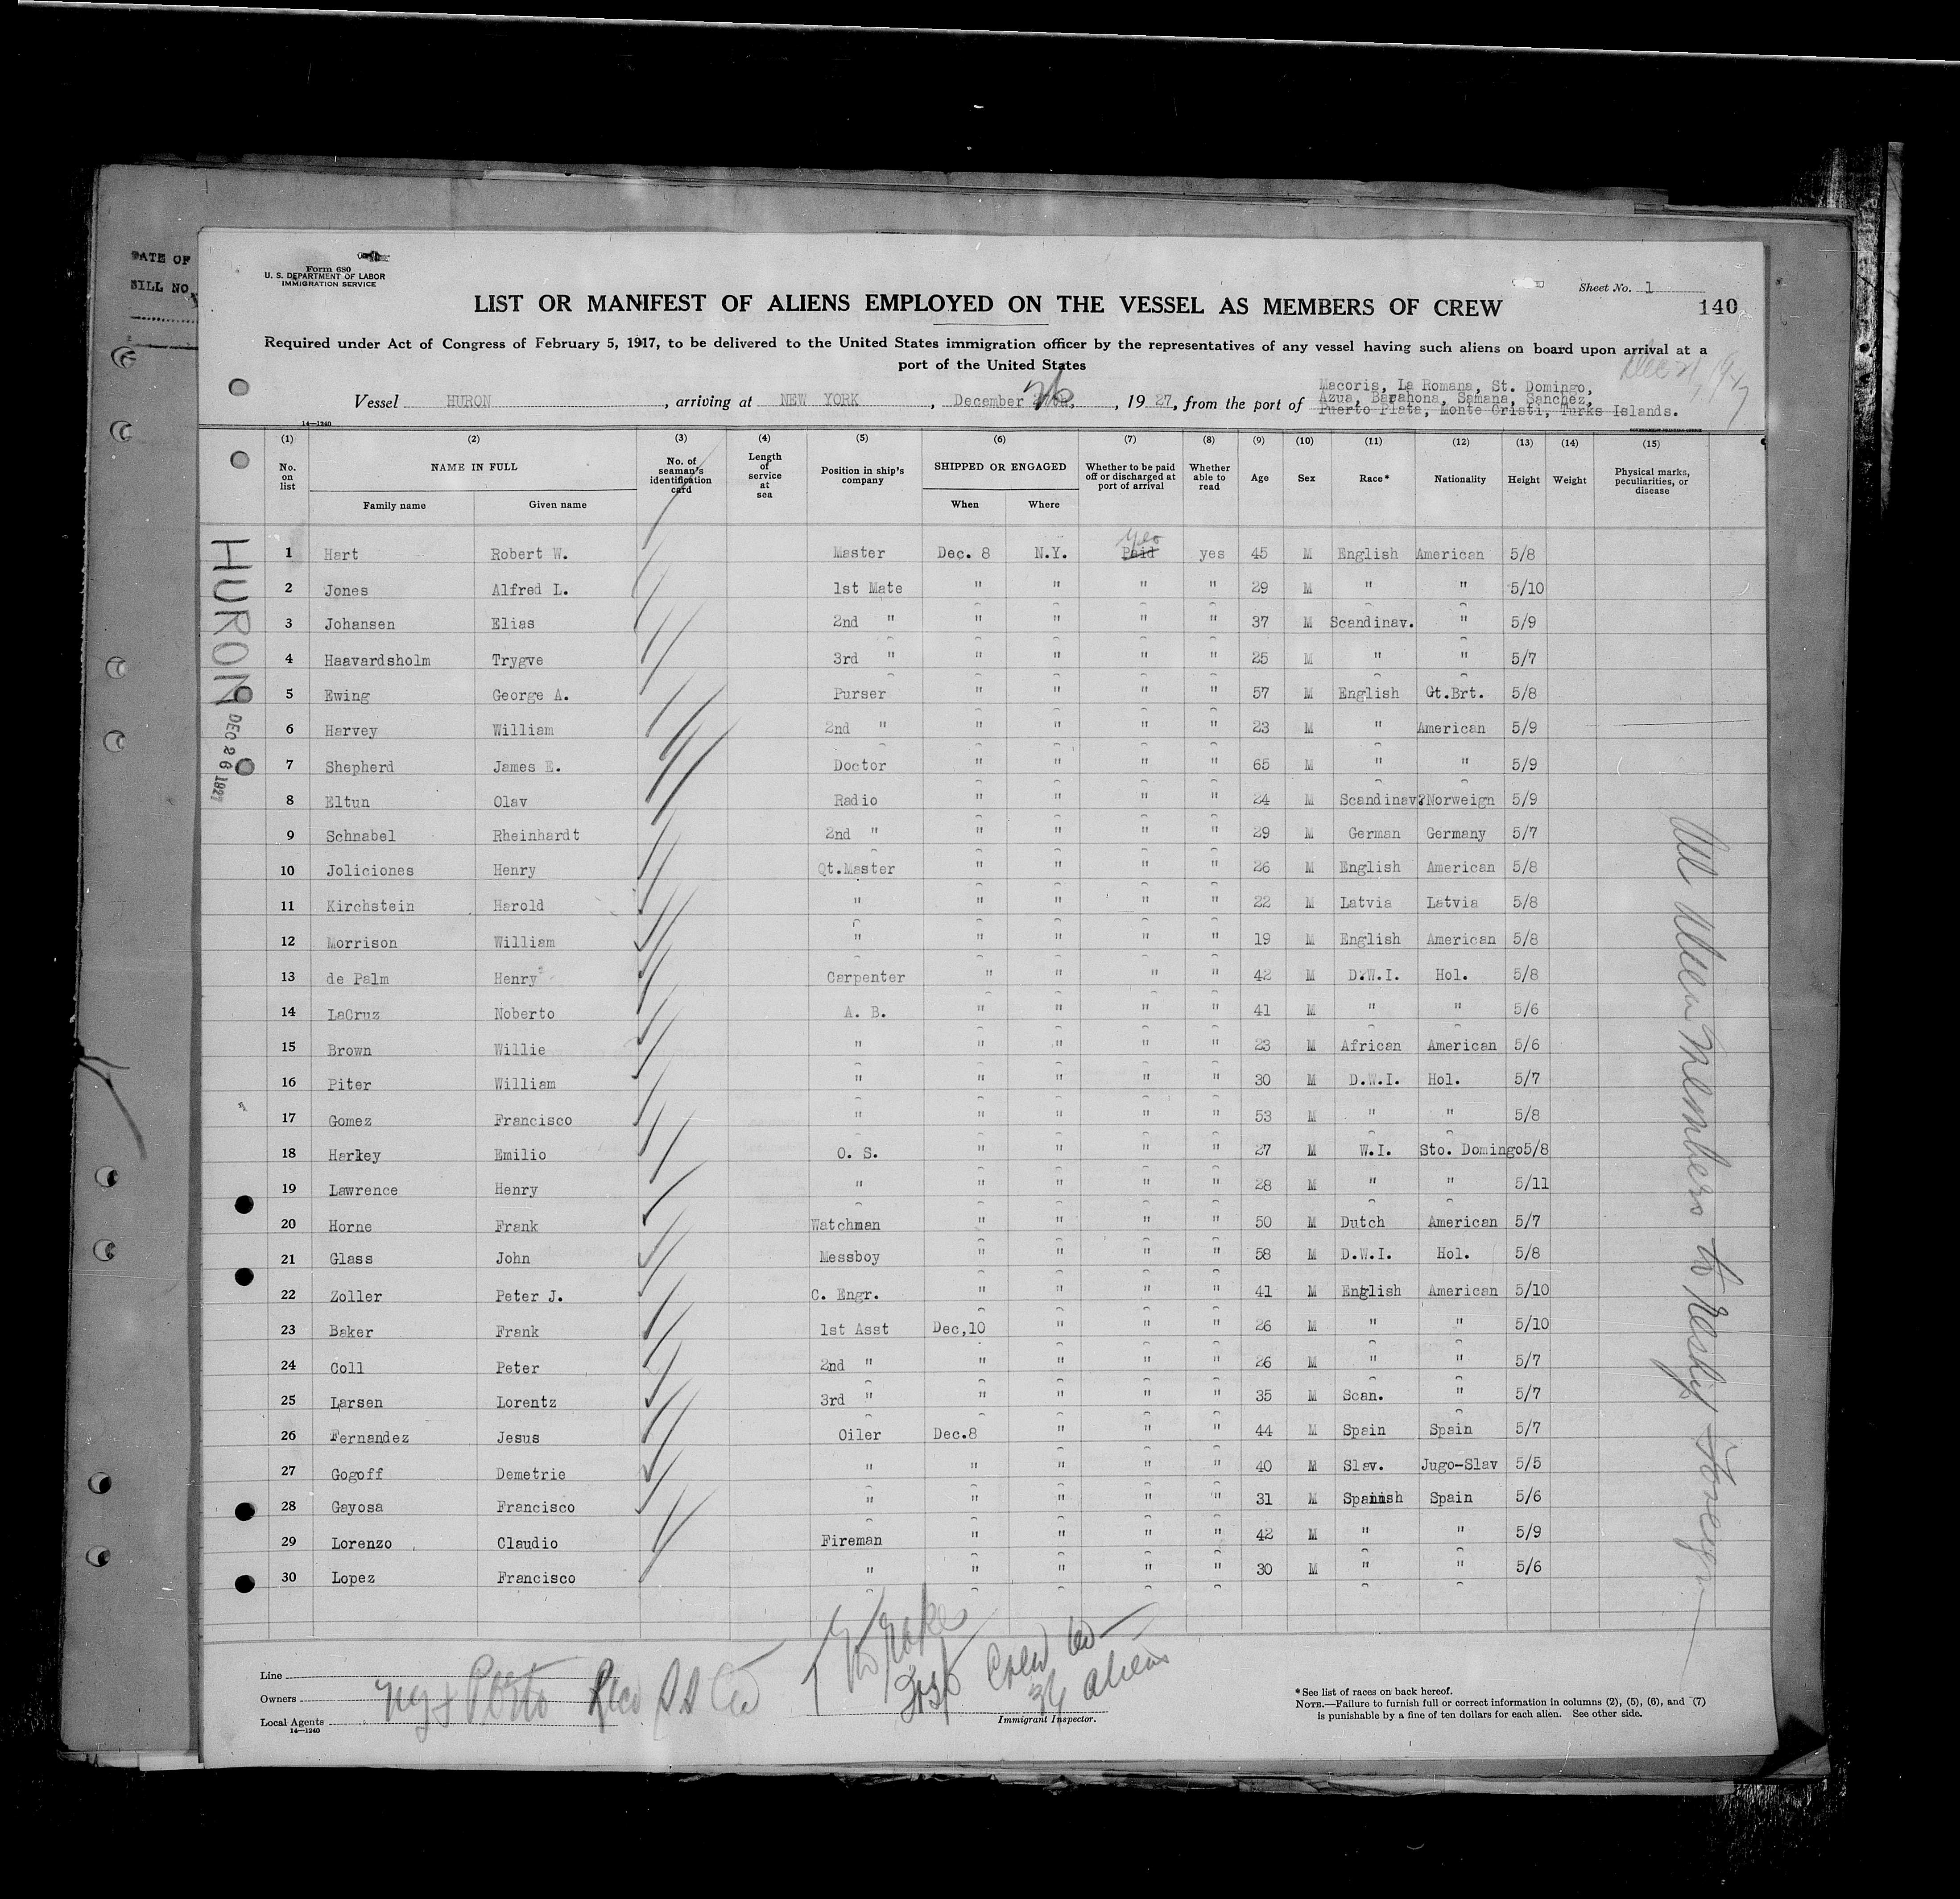 DATE OF
BILL NO.
Form 680
U. S. DEPARTMENT OF LABOR
IMMIGRATION SERVICE
Sheet No. 1
140
LIST OR MANIFEST OF ALIENS EMPLOYED ON THE VESSEL AS MEMBERS OF CREW
Required under Act of Congress of February 5, 1917, to be delivered to the United States immigration officer by the representatives of any vessel having such aliens on board upon arrival at a
port of the United States
Dec 21, 1927
Vessel HURON, arriving at NEW YORK, December 26, 1927, from the port of Macoris, La Romana, St. Domingo,
Azua, Barahona, Samana, Sanchez,
Puerto Plata, Monte Cristi, Turks Islands.
14—1240
(1) (2) (3) (4) (5) (6) (7) (8) (9) (10) (11) (12) (13) (14) (15)
No. on list NAME IN FULL No. of seaman's identification card Length of service at sea Position in ship's company SHIPPED OR ENGAGED Whether to be paid off or discharged at port of arrival Whether able to read Age Sex Race* Nationality Height Weight Physical marks, peculiarities, or disease
Family name Given name When Where
yes
1 Hart Robert W. Master Dec. 8 N.Y. Paid yes 45 M English American 5/8
2 Jones Alfred L. 1st Mate " " " " 29 M " " 5/10
3 Johansen Elias 2nd " " " " " 37 M Scandinav. " 5/9
4 Haavardsholm Trygve 3rd " " " " " 25 M " " 5/7
5 Ewing George A. Purser " " " " 57 M English Gt.Brt. 5/8
6 Harvey William 2nd " " " " " 23 M " American 5/9
7 Shepherd James E. Doctor " " " " 65 M " " 5/9
8 Eltun Olav Radio " " " " 24 M Scandinav? Norweign 5/9
9 Schnabel Rheinhardt 2nd " " " " " 29 M German Germany 5/7
10 Joliciones Henry Qt.Master " " " " 26 M English American 5/8
11 Kirchstein Harold " " " " " 22 M Latvia Latvia 5/8
12 Morrison William " " " " " 19 M English American 5/8
13 de Palm Henry Carpenter " " " " 42 M D.W.I. Hol. 5/8
14 LaCruz Noberto A. B. " " " " 41 M " " 5/6
15 Brown Willie " " " " " 23 M African American 5/6
16 Piter William " " " " " 30 M D.W.I. Hol. 5/7
17 Gomez Francisco " " " " " 53 M " " 5/8
18 Harley Emilio O. S. " " " " 27 M W.I. Sto. Domingo 5/8
19 Lawrence Henry " " " " " 28 M " " 5/11
20 Horne Frank Watchman " " " " 50 M Dutch American 5/7
21 Glass John Messboy " " " " 58 M D.W.I. Hol. 5/8
22 Zoller Peter J. C. Engr. " " " " 41 M English American 5/10
23 Baker Frank 1st Asst Dec,10 " " " 26 M " " 5/10
24 Coll Peter 2nd " " " " " 26 M " " 5/7
25 Larsen Lorentz 3rd " " " " " 35 M Scan. " 5/7
26 Fernandez Jesus Oiler Dec.8 " " " 44 M Spain Spain 5/7
27 Gogoff Demetrie " " " " " 40 M Slav. Jugo-Slav 5/5
28 Gayosa Francisco " " " " " 31 M Spanish Spain 5/6
29 Lorenzo Claudio Fireman " " " " 42 M " " 5/9
30 Lopez Francisco " " " " " 30 M " " 5/6
HURON
DEC 26 1927
All Alien Members to Reship Foreign
Line
Owners
Local Agents
14—1240
NY & Porto Rico SS Co
Crew
aliens
Immigrant Inspector.
* See list of races on back hereof.
NOTE.—Failure to furnish full or correct information in columns (2), (5), (6), and (7)
is punishable by a fine of ten dollars for each alien. See other side.